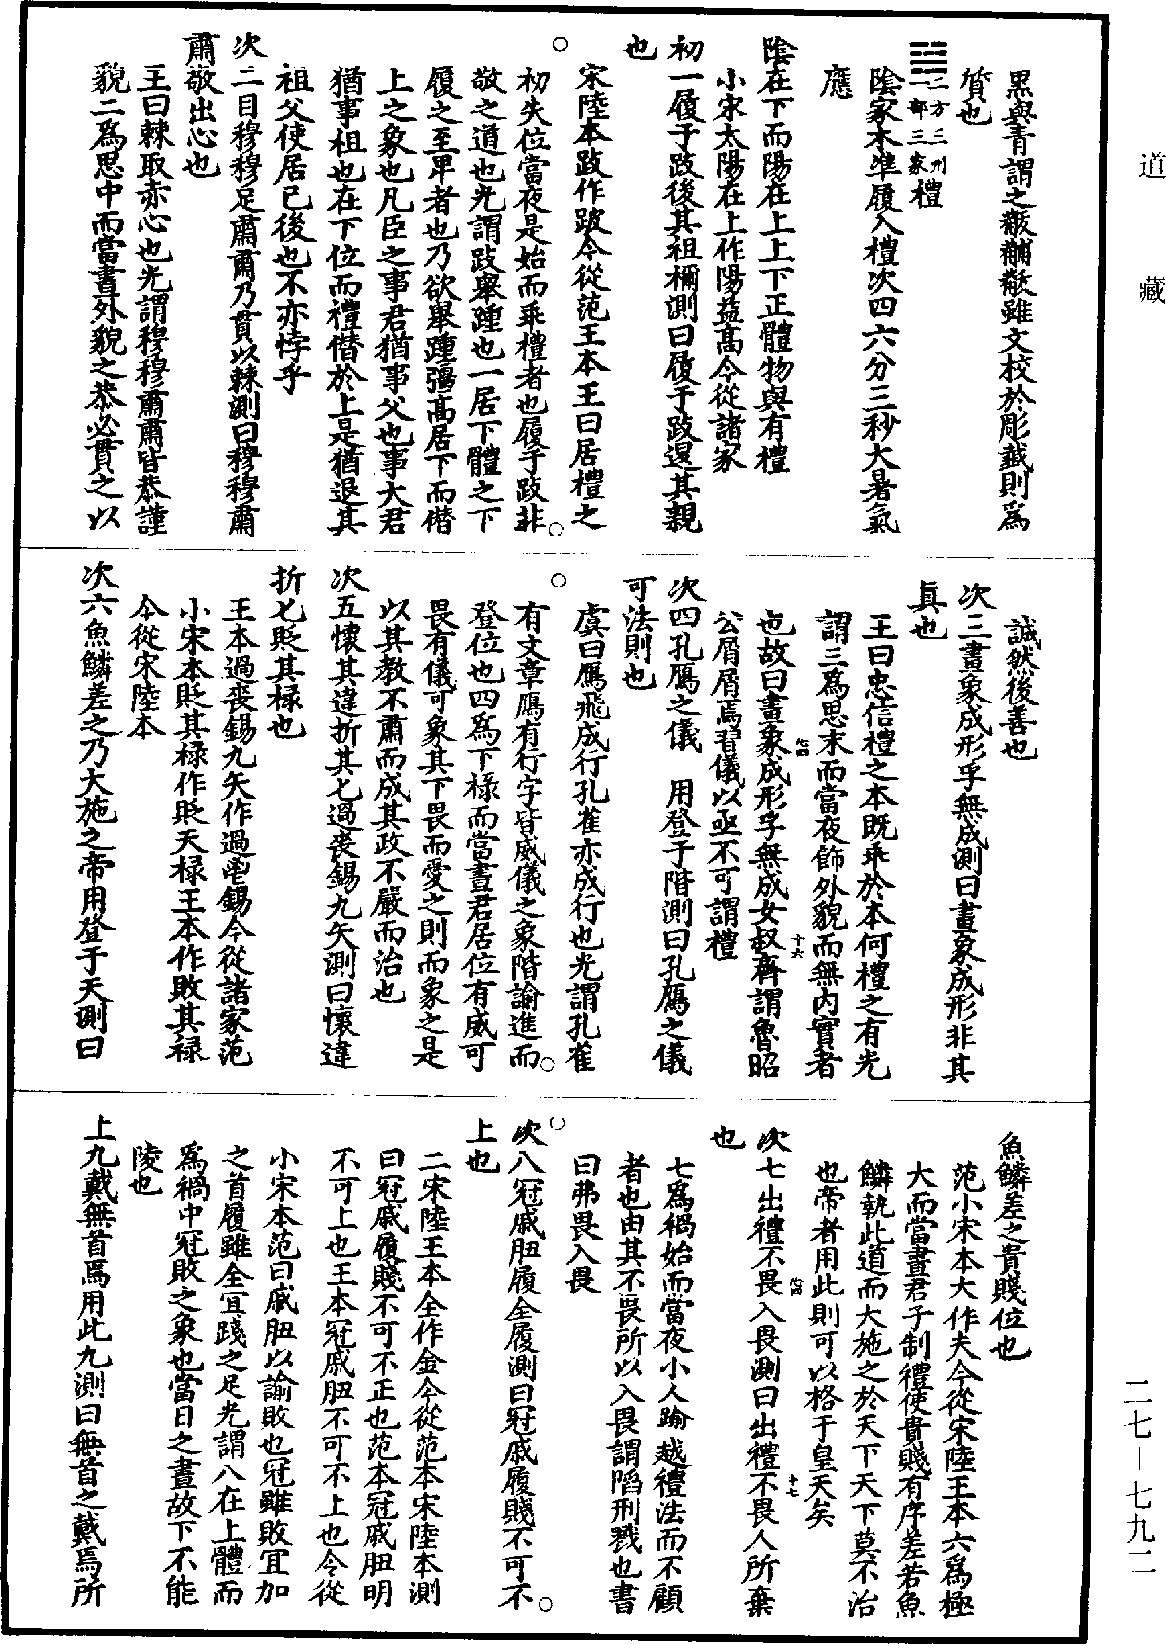 道藏
黑與青謂之黻黼黻雖文校於彫蔵則爲
質也
䷀二方三州二部三家禮
陰家木準履入禮次四六分三秒大暑氣
應
陰在下而陽在上上下正體物與有禮
小宋太陽在上作陽益高今從諸家
初一履于跂後其祖禰測曰履于跂退其親
也
宋陸本跂作跛今從范王本王曰居禮之
初失位當夜是始而乖禮者也履于跂非
敬之道也光謂跂舉踵也一居下體之下
履之至卑者也乃欲舉踵彊高居下而僭
上之象也凡臣之事君猶事父也事大君
猶事祖也在下位而禮僭於上是猶退其
祖父使居已後也不亦悖乎
次二目穆穆足肅肅乃貫以棘測曰穆穆肅
肅敬出心也
王曰棘取赤心也光謂穆穆肅肅皆恭謹
貌二爲思中而當晝外貌之恭必貫之以
誠然後善也
次三畫象成形孚無成測曰畫象成形非其
真也
王曰忠信禮之本既乖於本何禮之有光
謂三爲思末而當夜飾外貌而無内實者
也故曰畫象成形孚無成女叔齊謂魯昭
公屑屑焉習儀以亟不可謂禮
次四孔鴈之儀 用登于階測曰孔鴈之儀
可法則也
虞曰鴈飛成行孔雀亦成行也光謂孔雀
有文章鴈有行字皆威儀之象階諭進而
登位也四爲下禄而當晝君居位有威可
畏有儀可象其下畏而愛之則而象之是
以其教不肅而成其政不嚴而治也
次五懷其違折其匕過喪錫九矢測曰懷違
折匕貶其禄也
王本過喪錫九矢作過鬯錫今從諸家范
小宋本貶其禄作貶天禄王本作敗其禄
今從宋陸本
次六魚鱗差之乃大施之帝用登于天測曰
魚鱗差之貴賤位也
范小宋本大作夫今從宋陸王本六爲極
大而當晝君子制禮使貴賤有序差若魚
鱗執此道而大施之於天下天下莫不治
也帝者用此則可以格于皇天矣
次七出禮不畏入畏測曰出禮不畏人所棄
也
七爲禍始而當夜小人踰越禮法而不顧
者也由其不畏所以入畏謂陷刑戮也書
曰弗畏入畏
次八冠戚朒履全履測曰冠戚履賤不可不
上也
二宋陸王本全作金今從范本宋陸本測
曰冠戚履賤不可不正也范本冠戚朒明
不可上也王本冠戚朒不可不上也今從
小宋本范曰戚朒以諭敗也冠雖敗宜加
之首履雖全宜踐之足光謂八在上體而
爲禍中冠敗之象也當日之晝故下不能
陵也
上九戴無首焉用此九測曰無首之戴焉所
二七—七九二